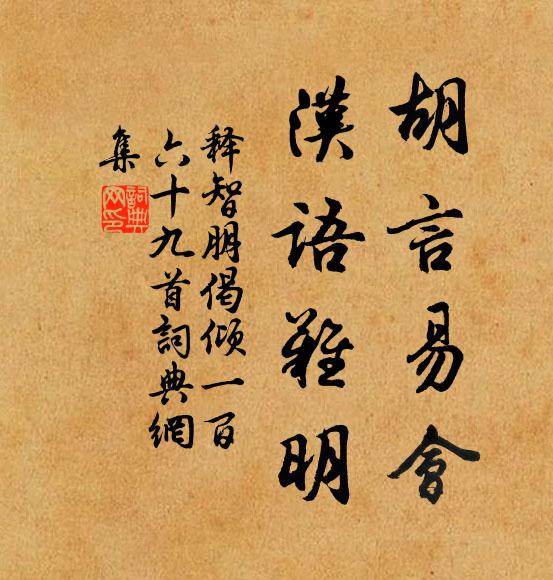 胡言易會
漢語難明
释智朋偈倾一百
六十九首詞典網
集
詞典
网印